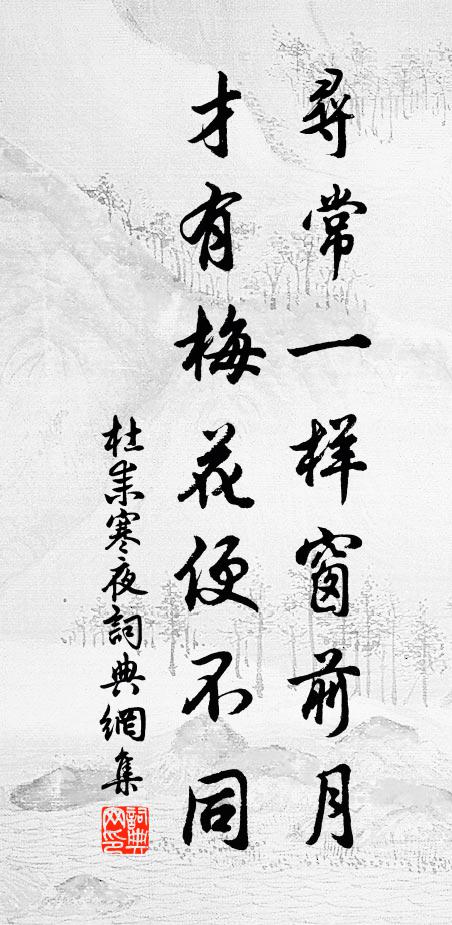 尋常一样窗前月
才有梅花便不同
杜耒寒夜詞典網集
詞典網印